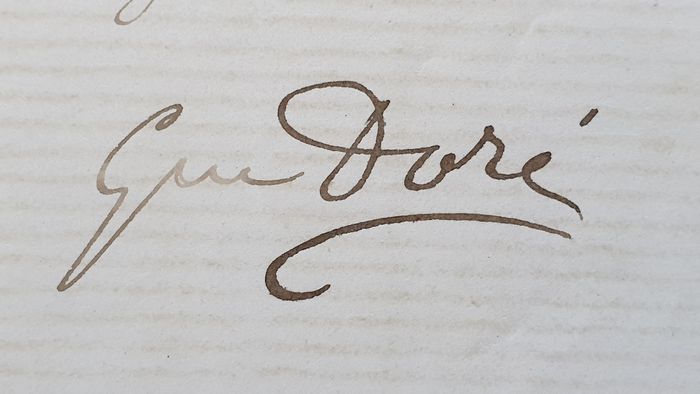 Gve Doré